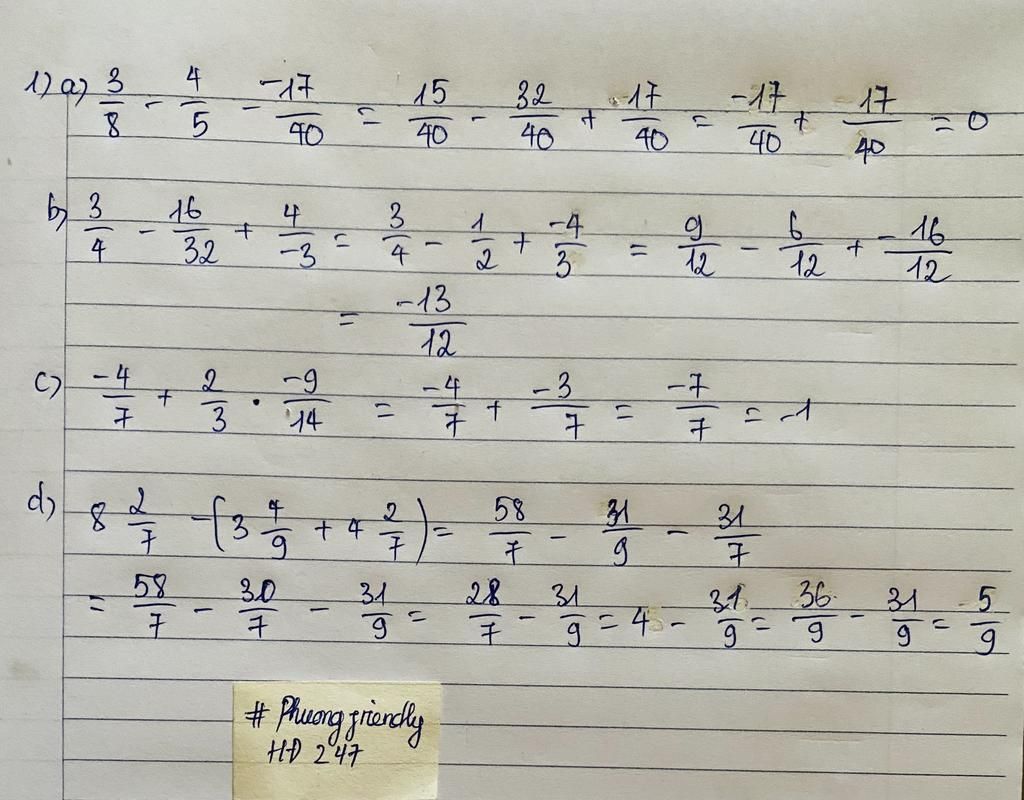 1) a) 3/8 - 4/5 - -17/40 = 15/40 - 32/40 + 17/40 = -17/40 + 17/40 = 0
b) 3/4 - 16/32 + 4/-3 = 3/4 - 1/2 + -4/3 = 9/12 - 6/12 + -16/12
= -13/12
c) -4/7 + 2/3 . -9/14 = -4/7 + -3/7 = -7/7 = -1
d) 8 2/7 - (3 4/9 + 4 2/7) = 58/7 - 31/9 - 31/7
= 58/7 - 30/7 - 31/9 = 28/7 - 31/9 = 4 - 31/9 = 36/9 - 31/9 = 5/9
# Phuongfriendly
HĐ 247